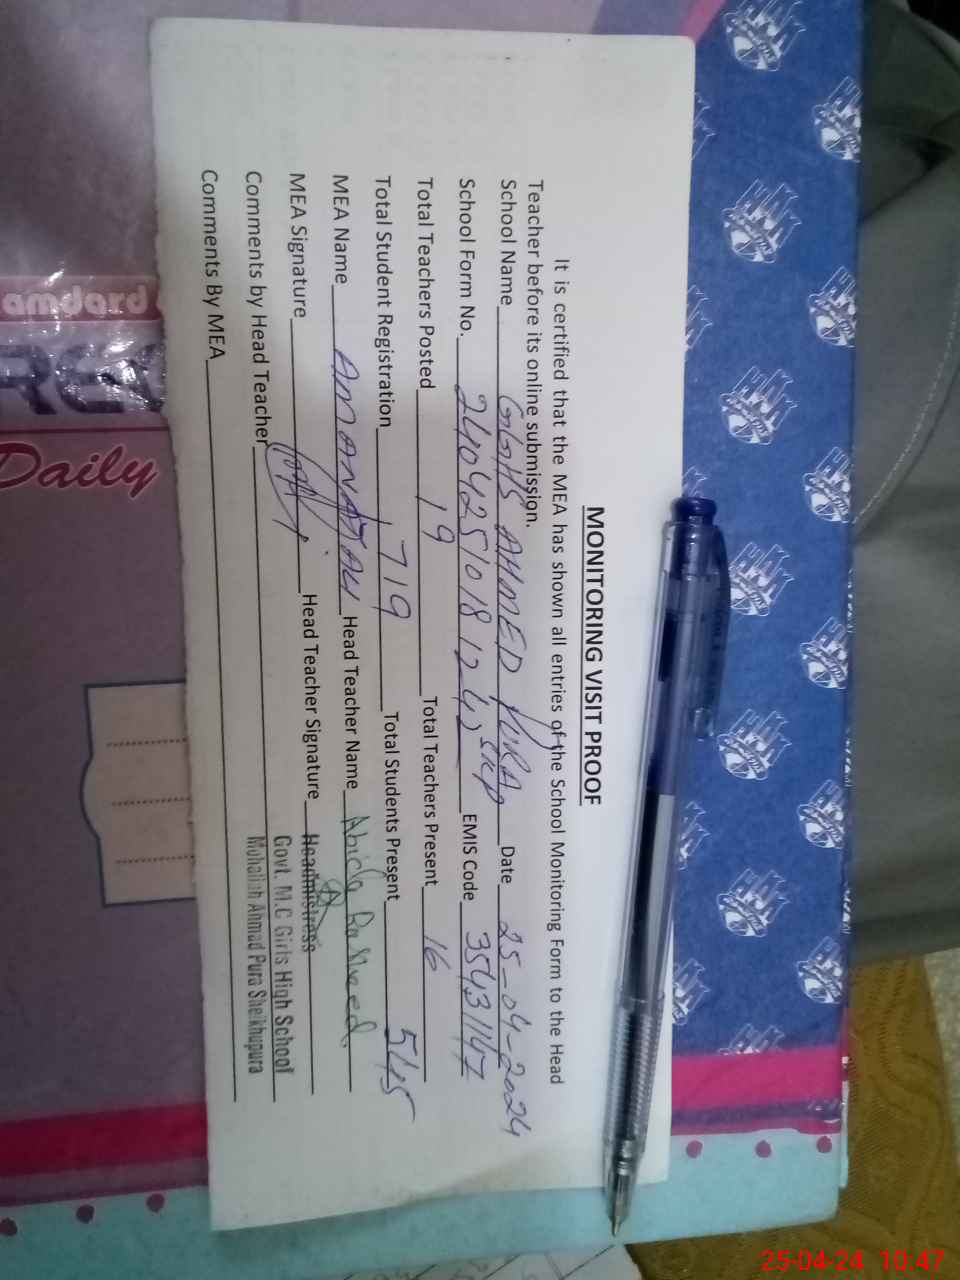 MONITORING VISIT PROOF
It is certified that the MEA has shown all entries of the School Monitoring Form to the Head
Teacher before its online submission.
School Name GGHS AHMED PURA SKP Date 25-04-2024
School Form No. EMIS Code 35431147
Total Teachers Posted 19 Total Teachers Present 16
Total Student Registration 719 Total Students Present 545
MEA Name Head Teacher Name Abida Rasheed
MEA Signature Head Teacher Signature Headmistress
Comments by Head Teacher Govt. M.C Girls High School
Comments By MEA Mohallah Ahmad Pura Sheikhupura
amdard
Daily
25-04-24 10:47